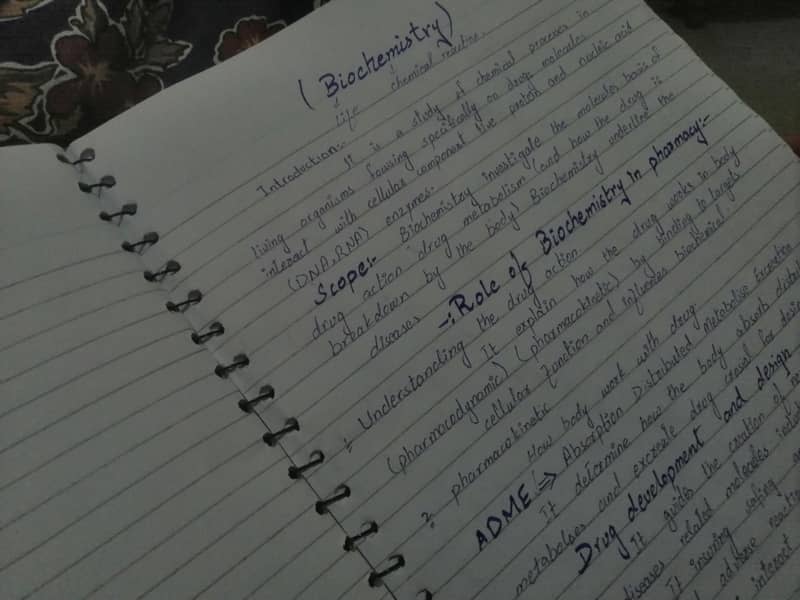 (Biochemistry)
Life chemical reaction.
Introduction:- It is a study of chemical processes in
living organisms focusing specifically on drug molecules
interact with cellular component like protein and nucleic acid
(DNA, RNA) enzymes:
Scope:- Biochemistry investigate the molecules basis of
drug action drug metabolism (and how the drug is
breakdown by the body) Biochemistry underline the
diseases
-: Role of Biochemistry in pharmacy:-
Understanding the drug action
It explain how the drug works in body
(pharmacodynamic) (pharmacokinetic) by binding to targets
cellular function and influence biochemical.
pharmacokinetic
How body work with drug.
ADME => Absorption Distributed metabolise Excretion
It determine how the body absorb
metabolses and excreate drug crucial for
Drug development and design
It guides the creation of
diseases related molecules
It insuring safing
adverse
interact